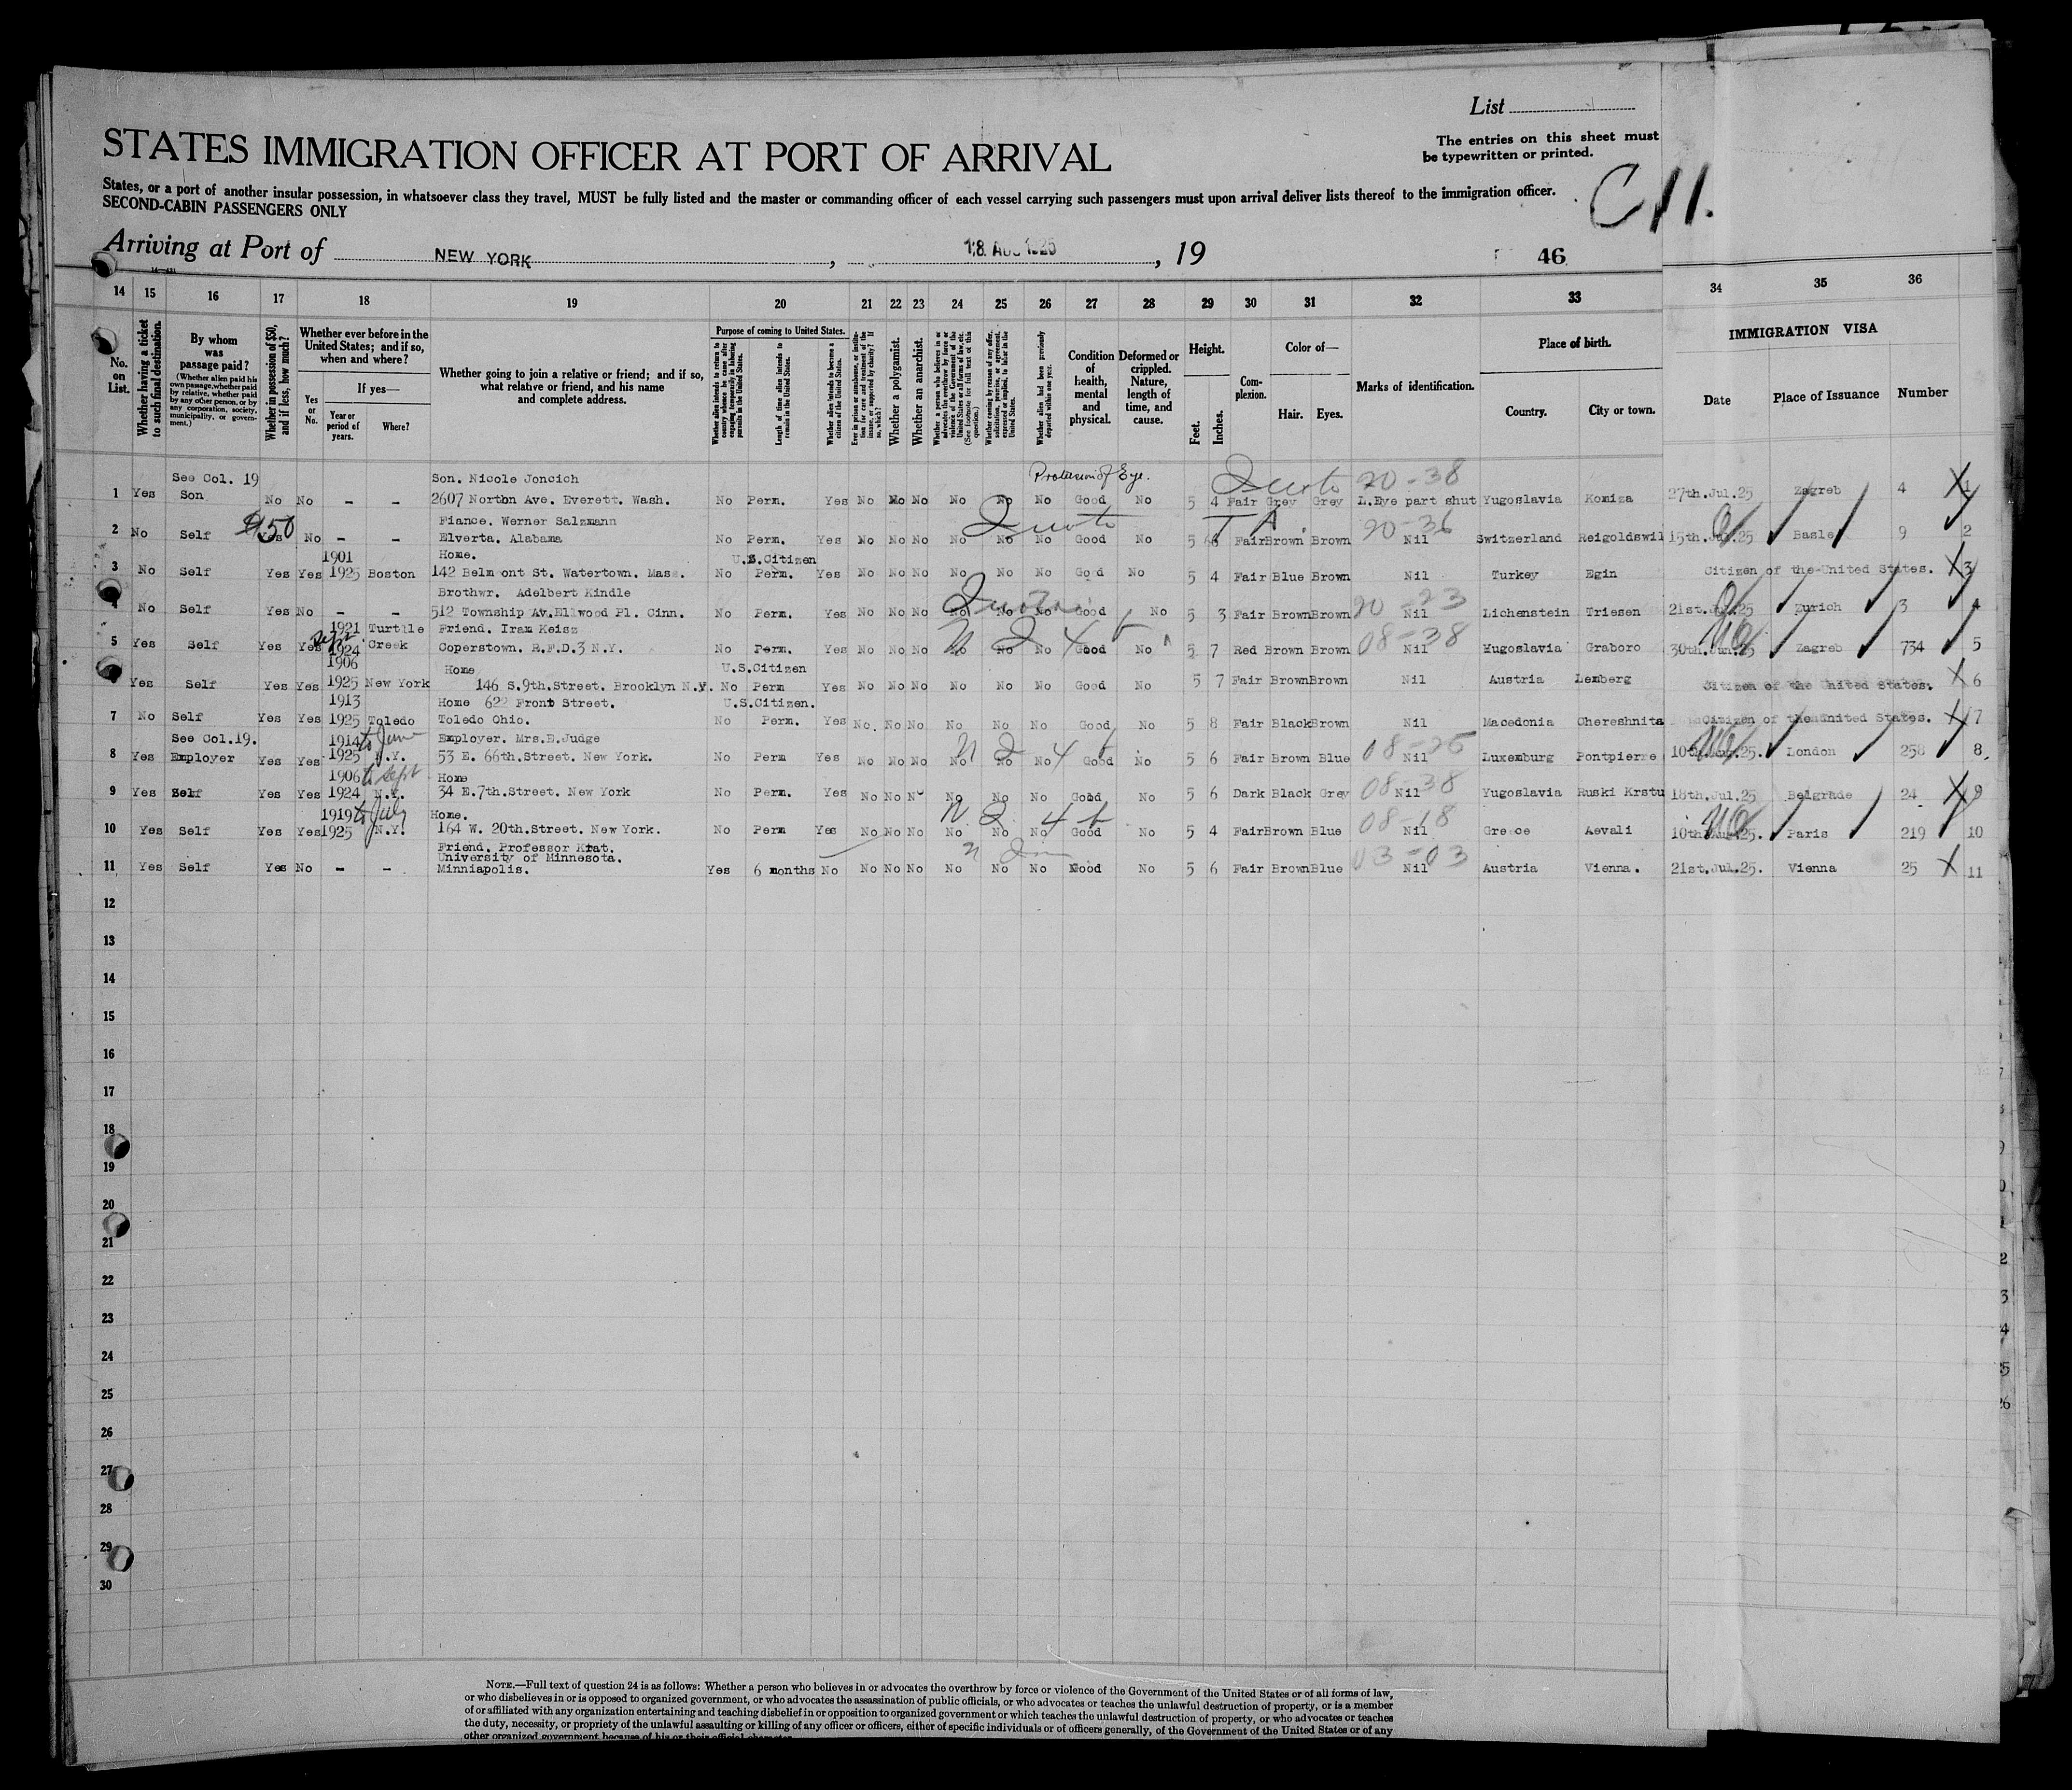 List
STATES IMMIGRATION OFFICER AT PORT OF ARRIVAL
The entries on this sheet must
be typewritten or printed.
States, or a port of another insular possession, in whatsoever class they travel, MUST be fully listed and the master or commanding officer of each vessel carrying such passengers must upon arrival deliver lists thereof to the immigration officer.
SECOND-CABIN PASSENGERS ONLY
C 11.
Arriving at Port of NEW YORK, 18 AUG 1925, 19 46
14 15 16 17 18 19 20 21 22 23 24 25 26 27 28 29 30 31 32 33 34 35 36
No. on List.
Whether having a ticket to such final destination.
By whom was passage paid?
(Whether alien paid his own passage, whether paid by relative, whether paid by any other person, or by any corporation, society, municipality, or government.)
Whether in possession of $50, and if less, how much?
Whether ever before in the United States; and if so, when and where?
Yes or No.
If yes—
Year or period of years.
Where?
Whether going to join a relative or friend; and if so, what relative or friend, and his name and complete address.
Purpose of coming to United States.
Whether alien intends to return to country whence he came after engaging temporarily in laboring pursuits in the United States.
Length of time alien intends to remain in the United States.
Whether alien intends to become a citizen of the United States.
Ever in prison or almshouse, or institution for care and treatment of the insane, or supported by charity? If so, which?
Whether a polygamist.
Whether an anarchist.
Whether coming by reason of any offer, solicitation, promise, or agreement, expressed or implied, to labor in the United States.
Whether alien had been previously deported within one year.
Condition of health, mental and physical.
Deformed or crippled. Nature, length of time, and cause.
Height.
Feet. Inches.
Complexion.
Color of—
Hair. Eyes.
Marks of identification.
Place of birth.
Country. City or town.
IMMIGRATION VISA
Date Place of Issuance Number
See Col. 19 Son. Nicole Joncich Quota 20-38
1 Yes Son No No - - 2607 Norton Ave. Everett. Wash. No Perm. Yes No No No No No No Good No 5 4 Fair Grey Grey L.Eye part shut Yugoslavia Komiza 27th.Jul.25 Zagreb 4 1
$50 Fiance. Werner Salzmann Quota 20-36
2 No Self Yes No - - Elverta. Alabama No Perm. Yes No No No No No No Good No 5 Fair Brown Brown Nil Switzerland Reigoldswil 15th.Jul.25 Basle 9 2
1901 Home. U.S.Citizen
3 No Self Yes Yes 1925 Boston 142 Belmont St. Watertown. Mass. No Perm. Yes No No No No No No Good No 5 4 Fair Blue Brown Nil Turkey Egin Citizen of the United States. 3
Brothwr. Adelbert Kindle Quota 20-23
4 No Self Yes No - - 512 Township Av.Ellwood Pl. Cinn. No Perm. Yes No No No No No No Good No 5 3 Fair Brown Brown Nil Lichenstein Triesen 21st.Jul.25 Zurich 3 4
1921 Turtlle Friend. Iram Keisz 08-38
5 Yes Self Yes Yes Sept. 1924 Creek Coperstown. R.F.D.3 N.Y. No Perm. Yes No No No No No No Good No 5 7 Red Brown Brown Nil Yugoslavia Graboro 30th.Jun.25 Zagreb 734 5
1906 Home U.S.Citizen
Yes Self Yes Yes 1925 New York 146 S.9th.Street. Brooklyn N.Y. No Perm Yes No No No No No No Good No 5 7 Fair Brown Brown Nil Austria Lemberg Citizen of the United States. 6
1913 Home 622 Front Street. U.S.Citizen.
7 No Self Yes Yes 1925 Toledo Toledo Ohio. No Perm. Yes No. No No No No No Good No 5 8 Fair Black Brown Nil Macedonia Chereshnita Citizen of the United States. 7
See Col.19. 1914 to June Employer. Mrs.E.Judge
8 Yes Employer Yes Yes 1925 N.Y. 53 E. 66th.Street. New York. No Perm Yes No No No No No No Good No 5 6 Fair Brown Blue Nil Luxemburg Pontpierre London 258 8
1906 to Sept Home 08-38
9 Yes Self Yes Yes 1924 N.Y. 34 E.7th.Street. New York No Perm. Yes No No No No No No Good No 5 6 Dark Black Grey Nil Yugoslavia Ruski Krstu 18th.Jul.25 Belgrade 24 9
1919 to July Home. 08-18
10 Yes Self Yes Yes 1925 N.Y. 164 W. 20th.Street. New York. No Perm Yes No No No No No No Good No 5 4 Fair Brown Blue Nil Greece Aevali Paris 219 10
Friend. Professor 03-03
University of Minnesota.
11 Yes Self Yes No - - Minniapolis. Yes 6 months No No No No No No No Good No 5 6 Fair Brown Blue Nil Austria Vienna. 21st.Jul.25. Vienna 25 11
12
13
14
15
16
17
18
19
20
21
22
23
24
25
26
27
28
29
30
NOTE.—Full text of question 24 is as follows: Whether a person who believes in or advocates the overthrow by force or violence of the Government of the United States or of all forms of law,
or who disbelieves in or is opposed to organized government, or who advocates the assassination of public officials, or who advocates or teaches the unlawful destruction of property, or is a member
of or affiliated with any organization entertaining and teaching disbelief in or opposition to organized government or which teaches the unlawful destruction of property, or who advocates or teaches
the duty, necessity, or propriety of the unlawful assaulting or killing of any officer or officers, either of specific individuals or of officers generally, of the Government of the United States or of any
other organized government because of his or their official character